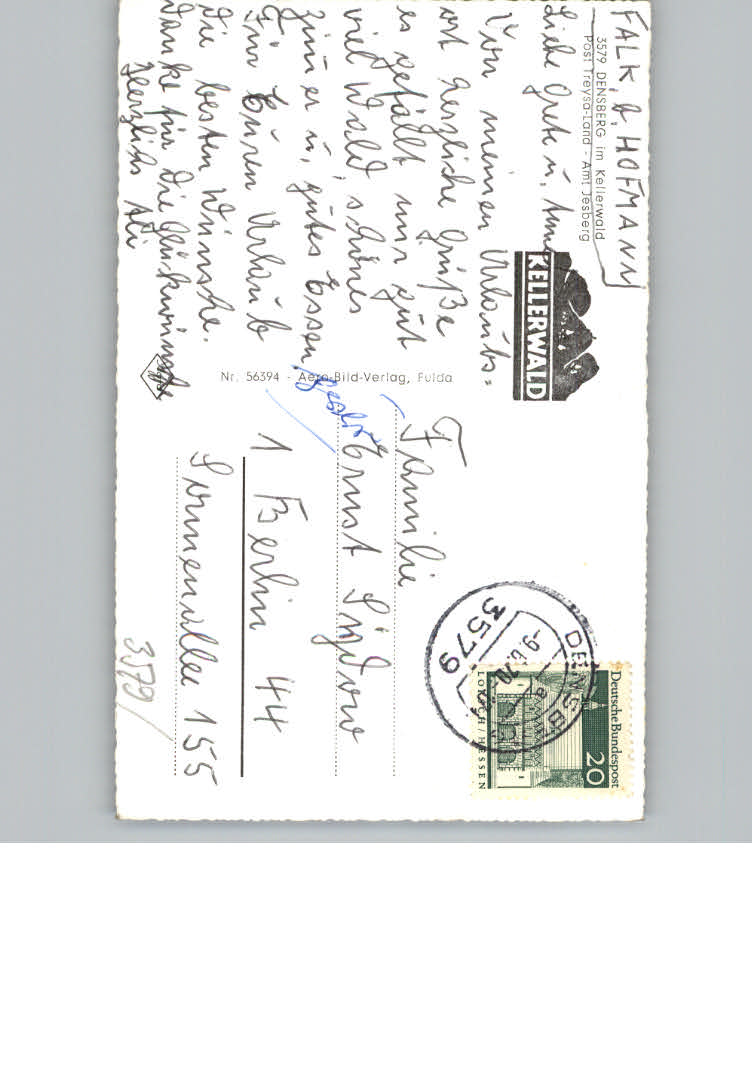 FALK, b, HOFMANN
3579 DENSBERG im Kellerwald
Post Treysa-Land - Amt Jesberg
Liebe Grete u,
Von meinen Urlaubs=
ort herzliche Grüße
es gefällt mir gut
viel Wald, schönes
Zimer u, gutes Essen
Für Euren Urlaub
die besten Wünsche.
Danke für die Glückwünsche
Herzlichst
KELLERWALD
Nr. 56394 - Aero-Bild-Verlag, Fulda
Familie
Ernst Sydow
1 Berlin 44
Sonnenallee 155
3579/
DENSBERG
3579
-9.
70
Deutsche Bundespost
20
LORSCH / HESSEN